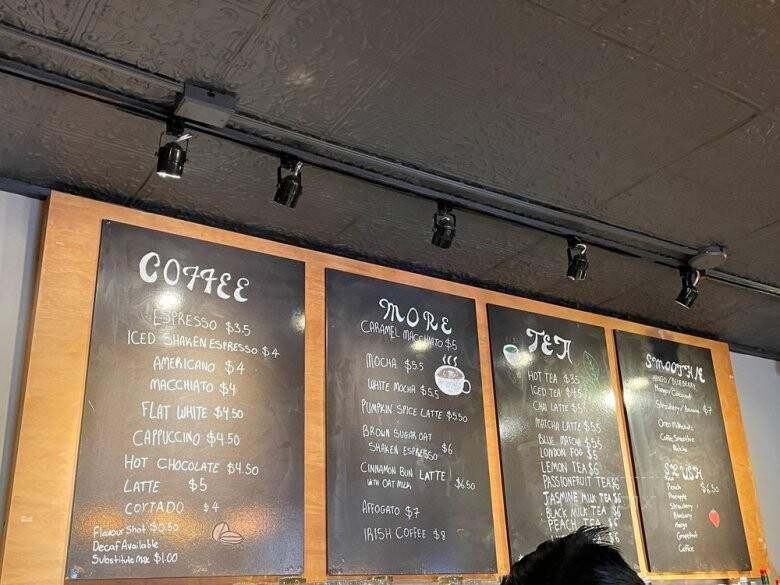 COFFEE
ESPRESSO $3.5
ICED SHAKEN ESPRESSO $4
AMERICANO $4
MACCHIATO $4
FLAT WHITE $4.50
CAPPUCCINO $4.50
HOT CHOCOLATE $4.50
LATTE $5
CORTADO $4
Flavour Shot $0.50
Decaf Available
Substitute $1.00
MORE
CARAMEL MACCHIATO $5
MOCHA $5.5
WHITE MOCHA $5.5
PUMPKIN SPICE LATTE $5.50
BROWN SUGAR OAT
SHAKEN ESPRESSO $6
CINNAMON BUN LATTE
WITH OAT MILK $6.50
AFFOGATO $7
IRISH COFFEE $8
TEA
HOT TEA $3.5
ICED TEA $4.5
CHAI LATTE $5
MATCHA LATTE $5.5
BLUE MATCHA $5.5
LONDON FOG $5
LEMON TEA $6
PASSIONFRUIT TEA $6
JASMINE MILK TEA $6
BLACK MILK TEA $6
PEACH TEA $6
SMOOTHIE
MANGO/BLUEBERRY
Mango/Coconut
Strawberry/Banana $7
Oreo Milkshake
Coffee Smoothie
SLUSH
Peach $6.50
Pineapple
Strawberry
Blueberry
Mango
Grapefruit
Coffee